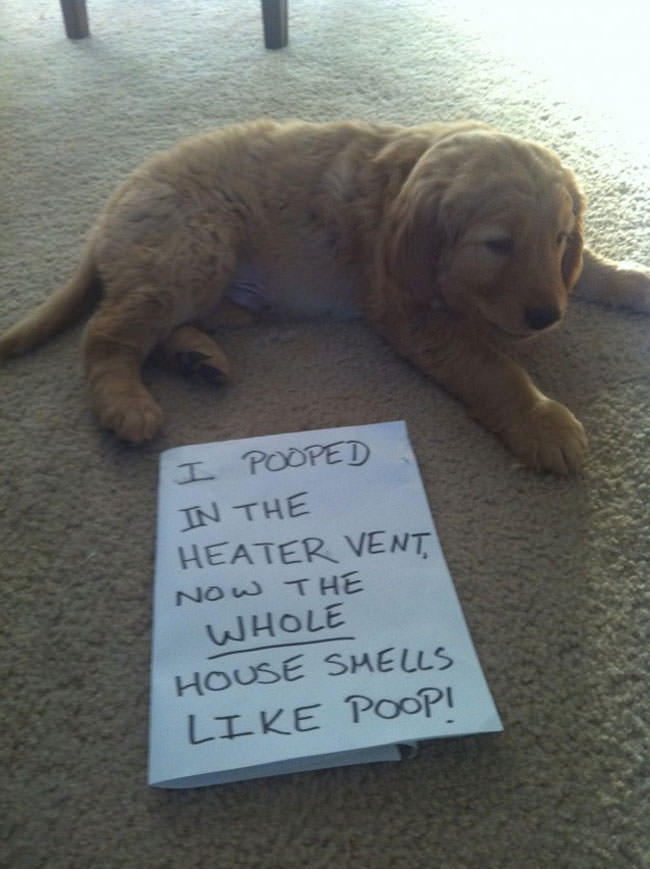 I POOPED
IN THE
HEATER VENT,
NOW THE
WHOLE
HOUSE SMELLS
LIKE POOP!